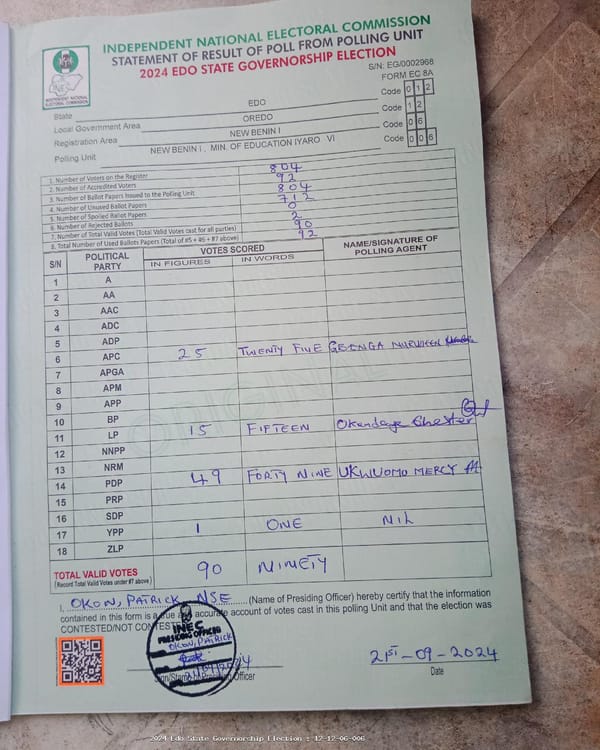 INDEPENDENT NATIONAL ELECTORAL COMMISSION
STATEMENT OF RESULT OF POLL FROM POLLING UNIT
2024 EDO STATE GOVERNORSHIP ELECTION
S/N: EG/0002968
FORM EC 8A
INEC
INDEPENDENT NATIONAL ELECTORAL COMMISSION
State EDO Code 0 1 2
Local Government Area OREDO Code 1 2
Registration Area NEW BENIN I Code 0 6
Polling Unit NEW BENIN I , MIN. OF EDUCATION IYARO VI Code 0 0 6
1. Number of Voters on the Register 804
2. Number of Accredited Voters 92
3. Number of Ballot Papers Issued to the Polling Unit 804
4. Number of Unused Ballot Papers 712
5. Number of Spoiled Ballot Papers 0
6. Number of Rejected Ballots 2
7. Number of Total Valid Votes (Total Valid Votes cast for all parties) 90
8. Total Number of Used Ballots Papers (Total of #5 + #6 + #7 above) 92
S/N POLITICAL PARTY VOTES SCORED NAME/SIGNATURE OF POLLING AGENT
IN FIGURES IN WORDS
1 A
2 AA
3 AAC
4 ADC
5 ADP
6 APC 25 TWENTY FIVE GBENGA NURUDEEN
7 APGA
8 APM
9 APP
10 BP
11 LP 15 FIFTEEN Chester
12 NNPP
13 NRM
14 PDP 49 FORTY NINE UKWUOMO MERCY
15 PRP
16 SDP
17 YPP 1 ONE NIL
18 ZLP
TOTAL VALID VOTES 90 NINETY
(Record Total Valid Votes under #7 above)
I, OKON, PATRICK NSE (Name of Presiding Officer) hereby certify that the information
contained in this form is a true and accurate account of votes cast in this polling Unit and that the election was
CONTESTED/NOT CONTESTED
INEC
PRESIDING OFFICER
OKON, PATRICK
21/09/2024
Sign/Stamp of Presiding Officer
21ST-09-2024
Date
ORIGINAL
2024 Edo State Governorship Election : 12-12-06-006